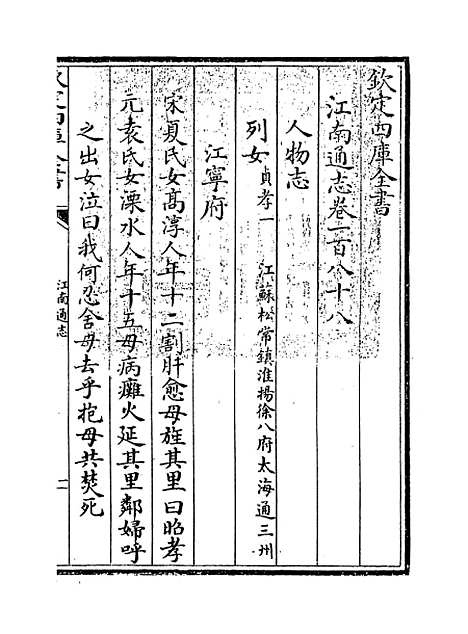 欽定四庫全書
江南通志卷一百八十八
人物志
列女貞孝一 江蘇松常鎮淮揚徐八府太海通三州
江寧府
宋夏氏女高淳人年十二割肝愈母旌其里曰昭孝
元袁氏女溧水人年十五母病癱火延其里鄰婦呼
之出女泣曰我何忍舍母去乎抱母共焚死
欽定四庫全書
江南通志